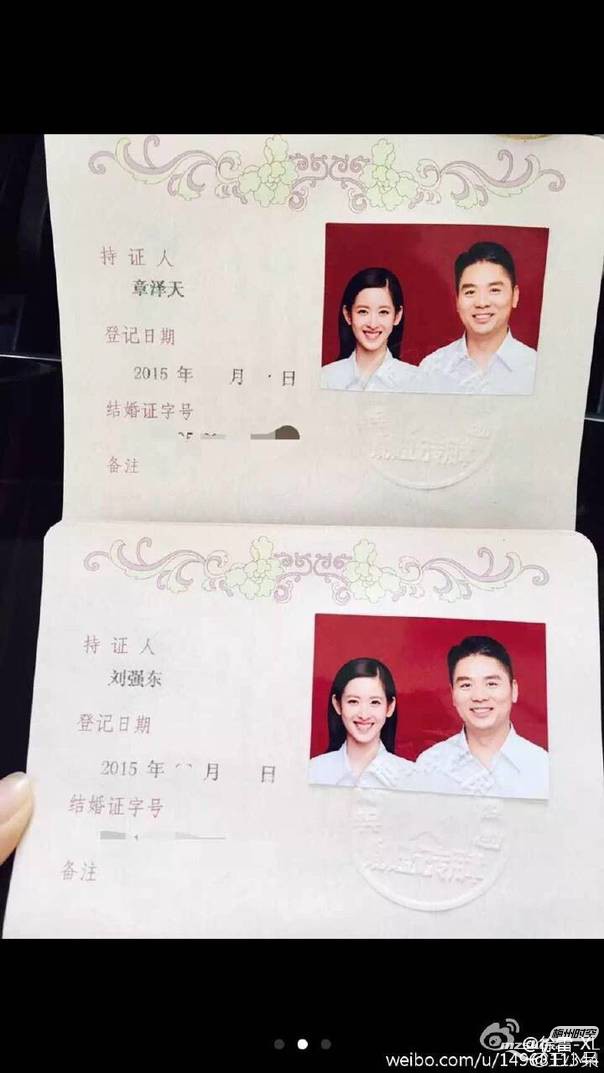 持证人
章泽天
登记日期
2015 年 月 日
结婚证字号
备注
持证人
刘强东
登记日期
2015 年 月 日
结婚证字号
备注
梅州时空